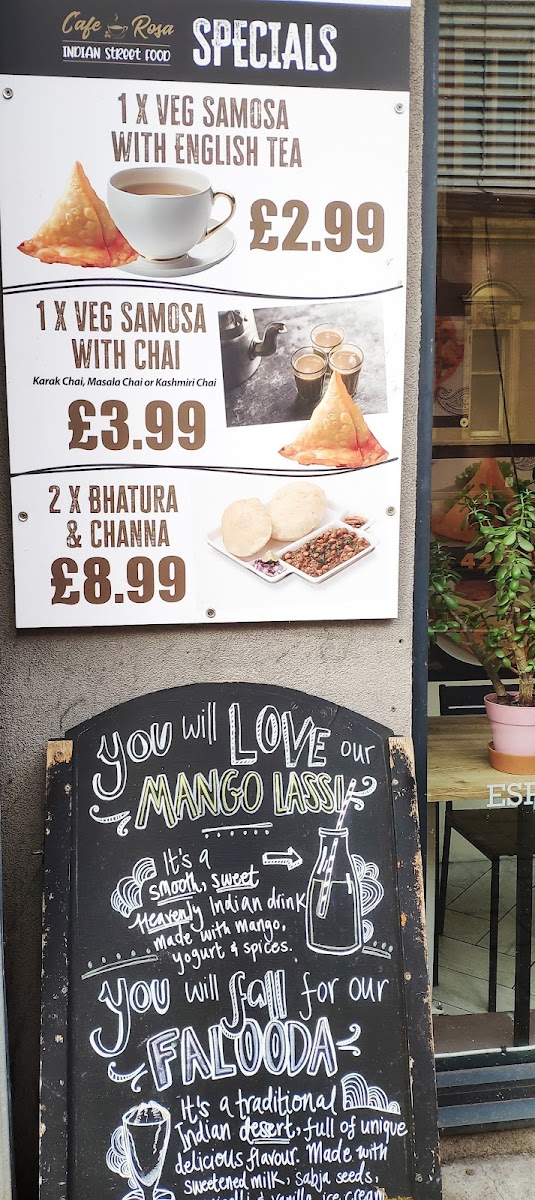 Cafe Rosa
INDIAN STREET FOOD
SPECIALS
1 X VEG SAMOSA
WITH ENGLISH TEA
£2.99
1 X VEG SAMOSA
WITH CHAI
Karak Chai, Masala Chai or Kashmiri Chai
£3.99
2 X BHATURA
& CHANNA
£8.99
You will LOVE our
MANGO LASSI
It's a
smooth, sweet
Heavenly Indian drink
made with mango,
yogurt & spices.
You will fall for our
FALOODA
It's a traditional
Indian desert, full of unique
delicious flavour. Made with
sweetened milk, sabja seeds,
& vanilla ice cream